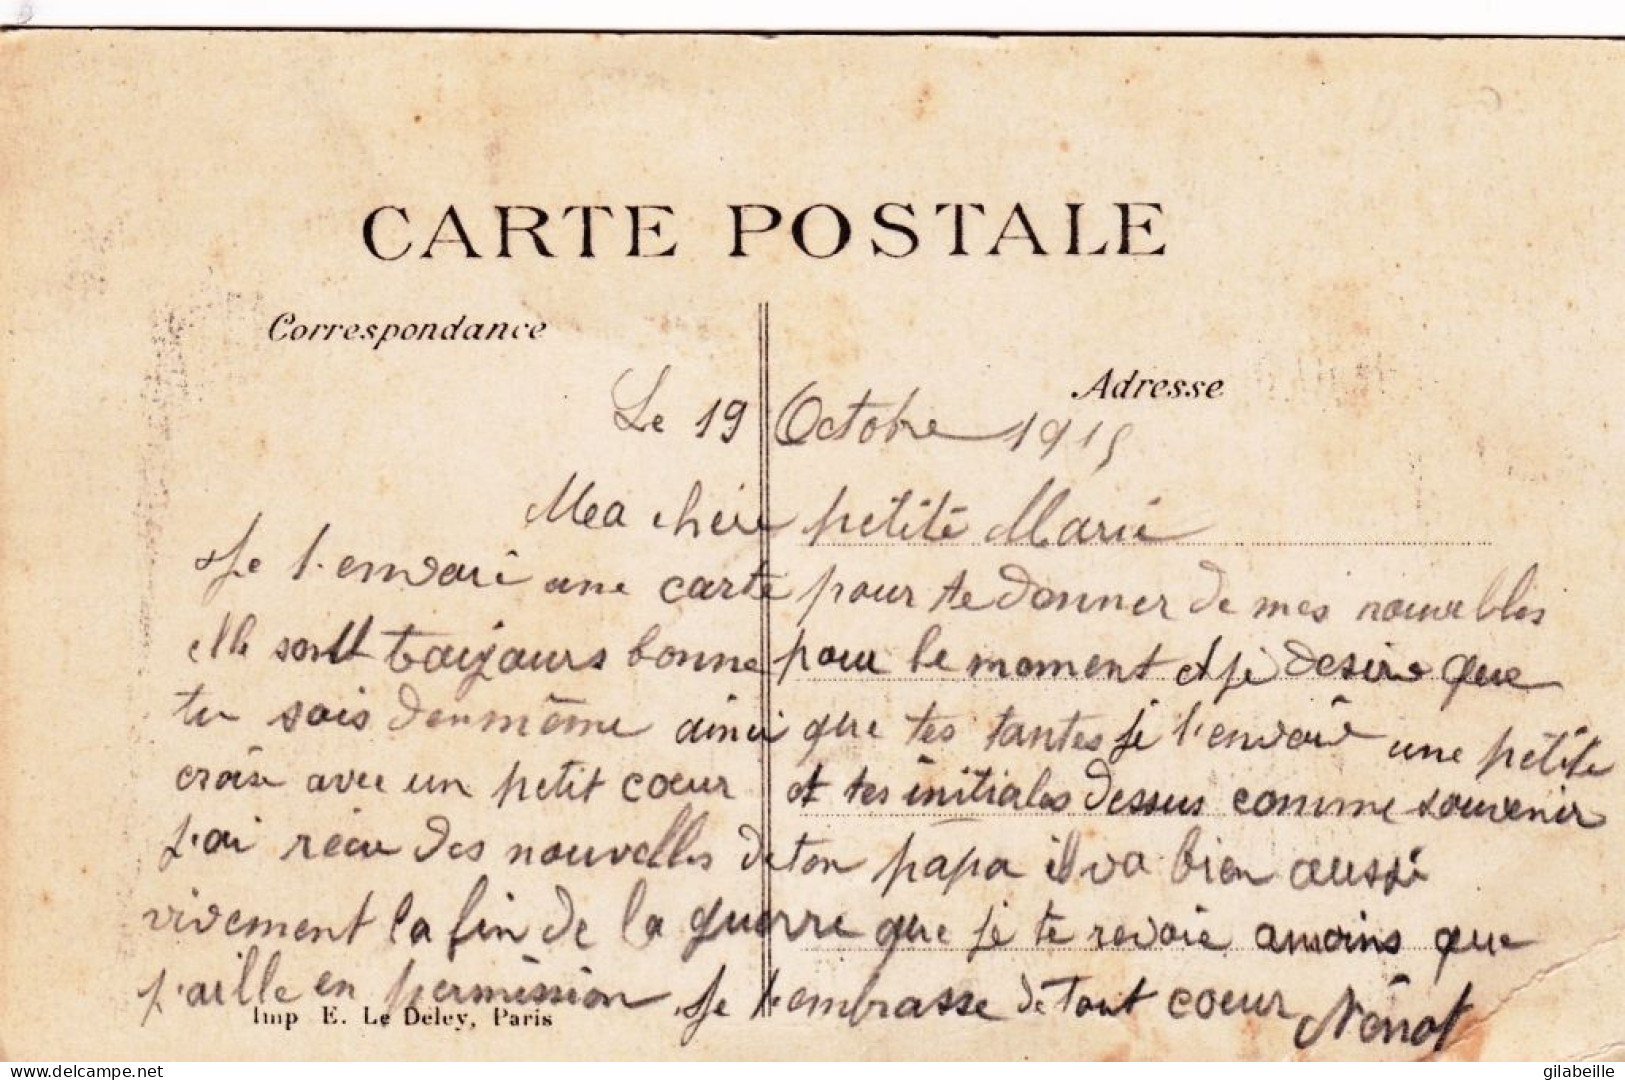 CARTE POSTALE
Correspondance
Adresse
Le 19 Octobre 1915
Mea chère petite Marie
Je t'envoie une carte pour te donner de mes nouvelles
elle sont toujours bonne pour le moment et je desire que
tu sois den même ainsi que tes tantes je t'envoie une petite
croix avec un petit cœur et tes initiales dessus comme souvenir
j'ai récu des nouvelles de ton papa il va bien aussi
vivement la fin de la guerre que je te revoie amoins que
j'aille en permission je t'embrasse de tout coeur
Imp E. Le Deley, Paris
gilabeille